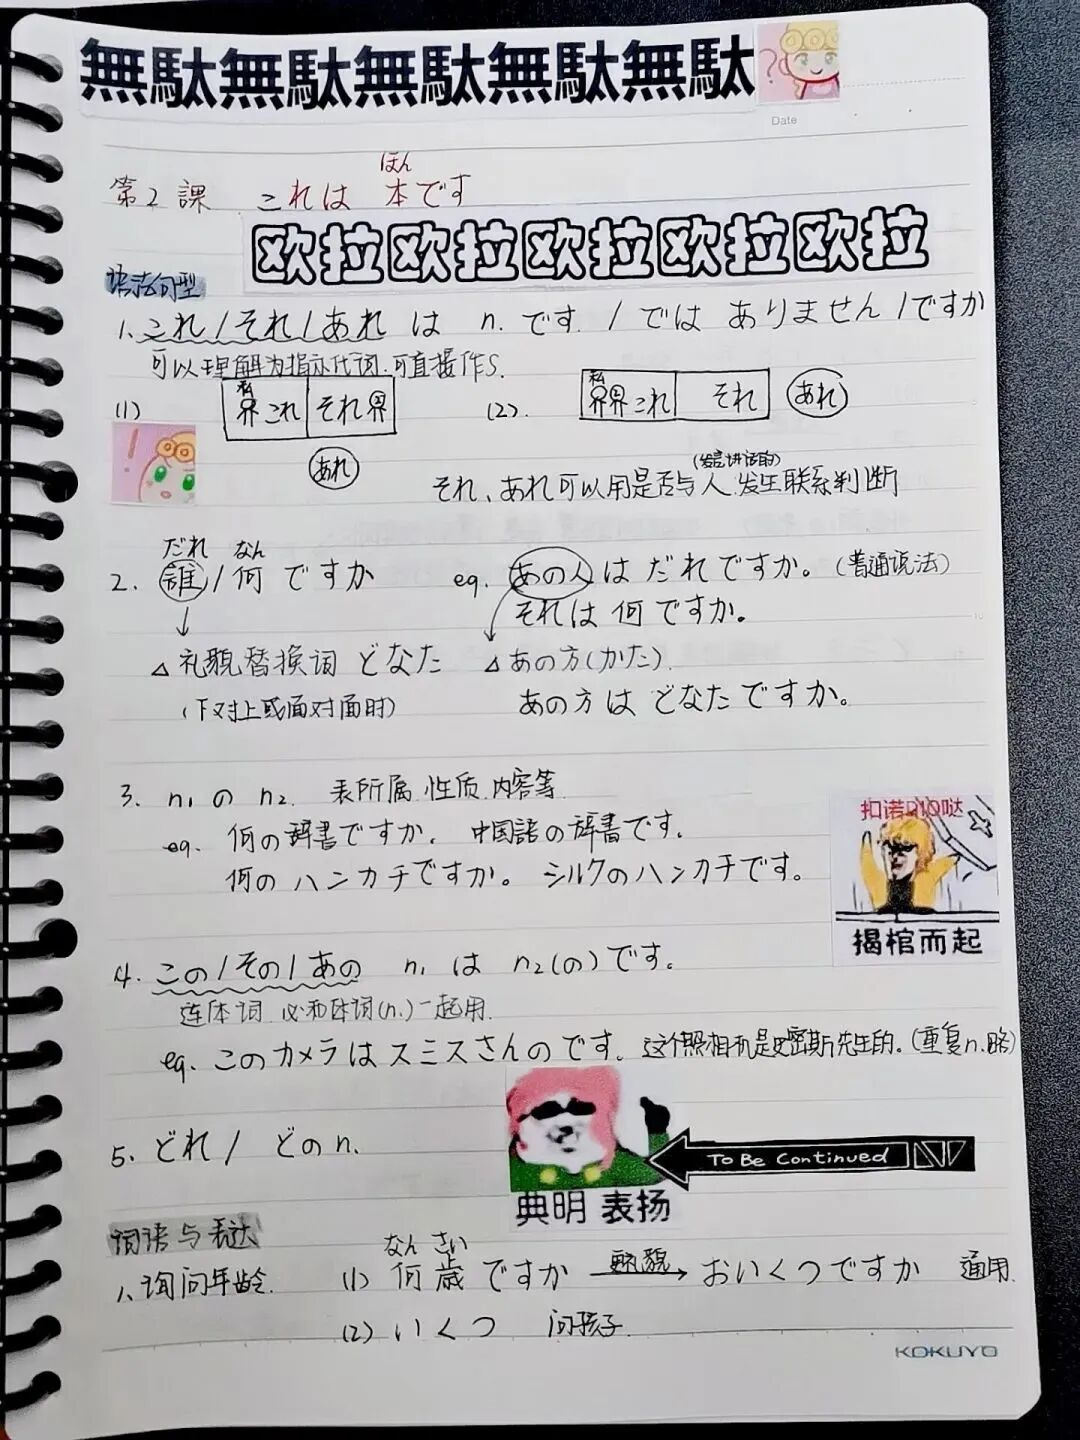 無駄無駄無駄無駄無駄
Date
ほん
第2課 これは 本です
欧拉欧拉欧拉欧拉欧拉
语法句型
1. これ/それ/あれ は n. です / では ありません/ですか
可以理解为指示代词.可直接作S.
(1) 私 界 これ それ 界 あれ
(2). 私 界界 これ それ あれ
(发言讲话的)
それ、あれ可以用是否与人.发生联系判断
だれ なん
2. 誰/何 ですか eg. あの人は だれですか。(普通说法)
それは 何 ですか。
△ 礼貌替换词 どなた △ あの方(かた).
(下对上或面对面时) あの方は どなたですか。
3. n₁ の n₂. 表所属.性质.内容等
eg. 何の辞書ですか。 中国語の辞書です.
何の ハンカチですか。 シルクのハンカチです。
扣诺DIO哒
揭棺而起
4. この/その/あの n₁ は n₂(の)です。
连体词 必和体词(n.)一起用.
eg. このカメラはスミスさんのです. 这个照相机是史密斯先生的。(重复n.略)
5. どれ/ どのn.
To Be Continued
典明 表扬
词语与表达
なん さい
1、询问年龄. (1) 何歳ですか 礼貌 おいくつですか 通用.
(2) いくつ 问孩子.
KOKUYO